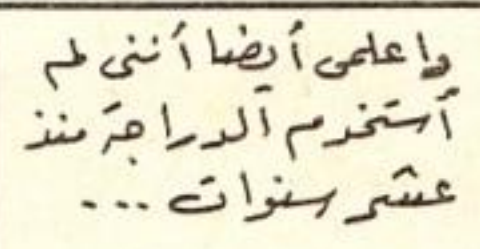 واعلمى أيضا أننى لم
أستخدم الدراجة منذ
عشر سنوات ...